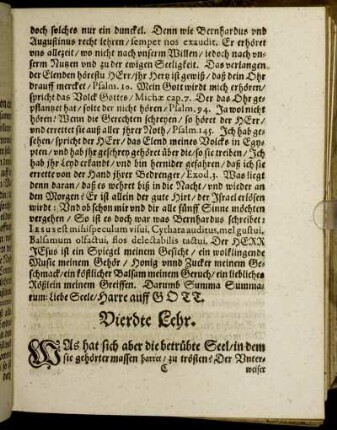 doch solches nur ein dunckel. Denn wie Bernhardus vnd
Augustinus recht lehren / semper nos exaudit. Er erhöret
vns allezeit / wo nicht nach vnserm Willen / jedoch nach vn-
serm Nutzen vnd zu der ewigen Seligkeit. Das verlangen
der Elenden hörestu HErr / jhr Hertz ist gewiß / daß dein Ohr
drauff mercket / Psalm. 10. Mein Gott wirdt mich erhören /
spricht das Volck Gottes / Michæ cap. 7. Der das Ohr ge-
pflantzet hat / solte der nicht hören / Psalm. 94. Ja wol nicht
hören: Wenn die Gerechten schreyen / so höret der HErr /
vnd errettet sie auß aller jhrer Noth / Psalm. 145. Ich hab ge-
sehen / spricht der HErr / das Elend meines Volcks in Egy-
pten / vnd hab jhr geschrey gehöret über die / so sie treiben / Ich
hab jhr Leyd erkandt / vnd bin hernider gefahren / daß ich sie
errette von der Hand jhrer Bedrenger / Exod. 3. Was liegt
denn daran / daß es wehret biß in die Nacht / vnd wieder an
den Morgen: Er ist allein der gute Hirt / der Israel erlösen
wirdt: Vnd ob schon mir vnd dir alle fünff Sinne möchten
vergehen / So ist es doch war was Bernhardus schreibt:
Iesus est mihi speculum visui, Cythara auditui, mel gustui,
Balsamum olfactui, flos delectabilis tactui. Der HERR
JEsus ist ein Spiegel meinem Gesicht / ein wolklingende
Music meinem Gehör / Honig vnnd Zucker meinem Ge-
schmack / ein köstlicher Balsam meinem Geruch / ein liebliches
Rößlein meinem Greiffen. Darumb Summa Summa-
rum: Liebe Seele / Harre auff GOTT.
Vierdte Lehr.
WAs hat sich aber die betrübte Seel / in dem
sie gehörter massen harret / zu trösten? Der Vnter-
C weiser